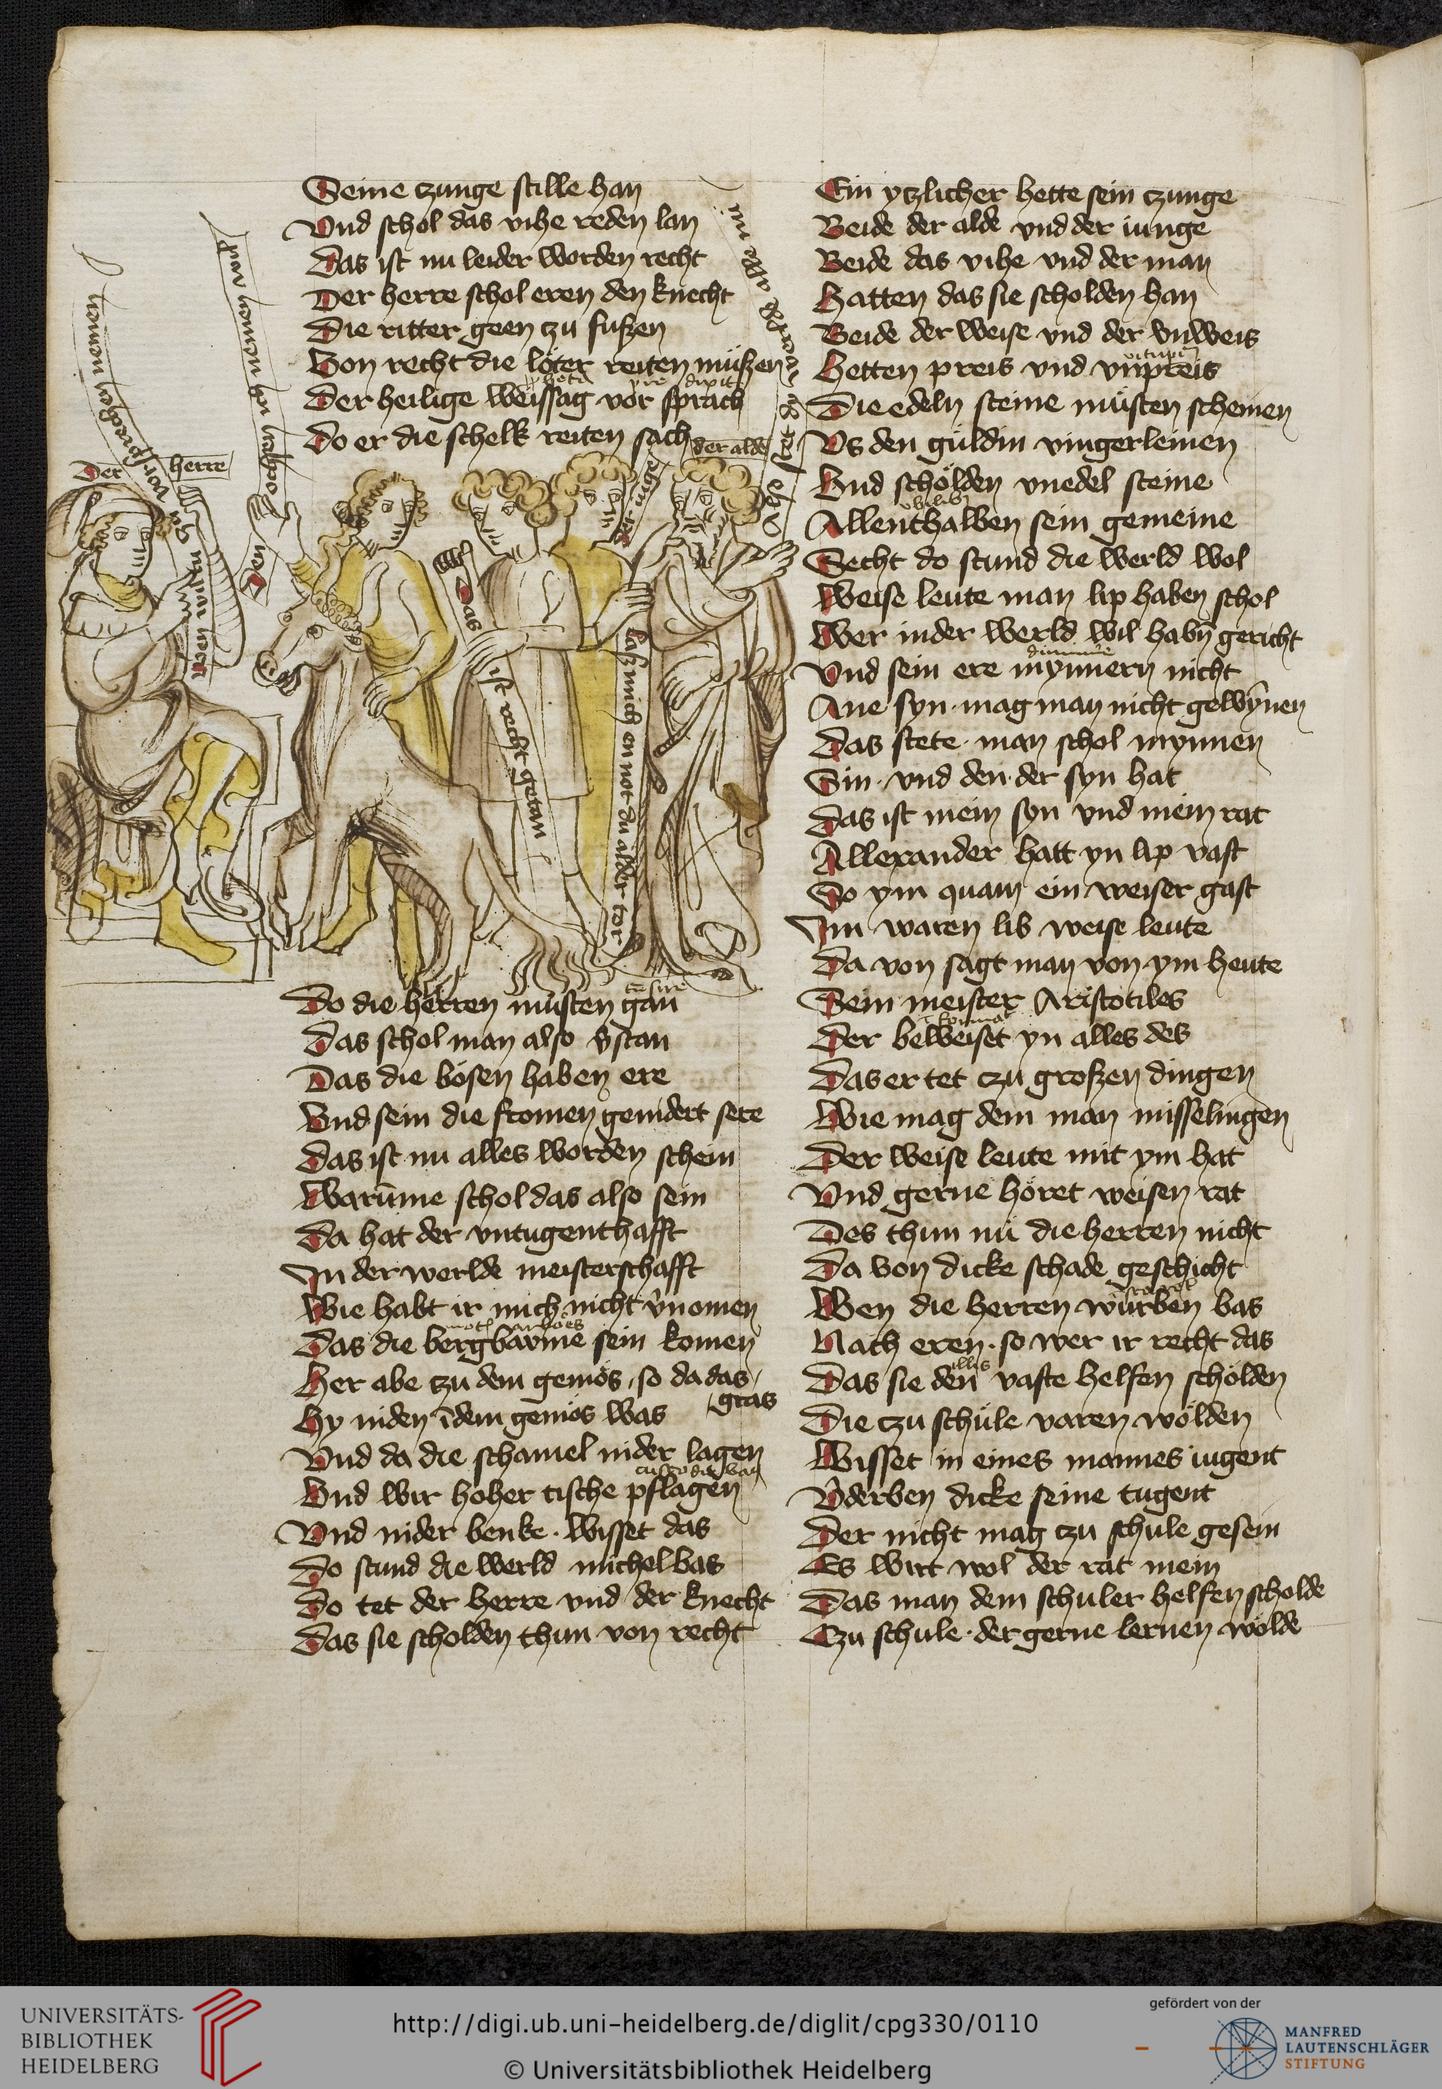 Seine czunge stille han
Vnd schol das vihe reden lan
Das ist nu leider worden recht
Der herre schol eren den knecht
Die ritter geen zu fußen
Von recht die loter reiten müßen
dixit
Der heilige weissag vor sprach
Do er die schelk reiten sach
der alde
Der
herre
Das
ist recht getan
laß mich en not du alder tor
Do die herren musten gan
Das schol man also v̄stan
Das die bosen haben ere
Vnd sein die fromen genidert sere
Das ist nu alles worden schein
Warūme schol das also sein
Da hat der vntugenthafft
In der werlde meisterschafft
Wie habt ir mich nicht v̄nomen
Das die bergbawme sein komen
Her abe czu dem gemos, so da das
gras
Hy niden ī dem gemos was
Vnd da die schamel nider lagen
Vnd wir hoher tische pflagen
Vnd nider benke. Wisset das
Do stund die werld michel bas
Do tet der herre vnd der knecht
Das sie scholden thun von recht
Ein yczlicher hette sein czunge
Beide der alde vnd der iunge
Beide das vihe vnd der man
Hatten das sie scholden han
Beide der weise vnd der vnweis
Hetten preis vnd vnpreis
Die edeln steine müsten scheinen
Vs den güldin vingerleinen
Vnd schölden vnedel steine
Allenthalben sein gemeine
Secht do stund die werld wol
Weise leute man lip haben schol
Wer in der werld wil habn̄ gericht
Vnd sein ere mynnern nicht
Ane syn. mag man nicht gewȳnen
Das stete. man schol mynnen
Sin. vnd den. der syn hat
Das ist mein son vnd mein rat
Allexander hatt yn lip vast
Do ym quam ein weiser gast
Im waren lib weise leute
Da von sagt man von ym heute
Sein meister Aristotiles
Der beweiset yn alles des
Das er tet czu großen dingen
Wie mag dem man misselingen
Der weise leute mit ym hat
Vnd gerne höret weisen rat
Des thun nü die herren nicht
Da von dicke schade geschicht
Wen die herren würben bas
Nach eren. so wer ir recht das
illis
Das sie den vaste helfen schölden
Die czu schüle varen wölden
Wisset in eines mannes iugent
V̄derben dicke seine tugent
Der nicht mag czu schule gesein
Es wirt wol der rat mein
Das man dem schuler helfen scholde
Czu schule. der gerne lernen wölde
UNIVERSITÄTS-
BIBLIOTHEK
HEIDELBERG
http://digi.ub.uni-heidelberg.de/diglit/cpg330/0110
© Universitätsbibliothek Heidelberg
gefördert von der
MANFRED
LAUTENSCHLÄGER
STIFTUNG